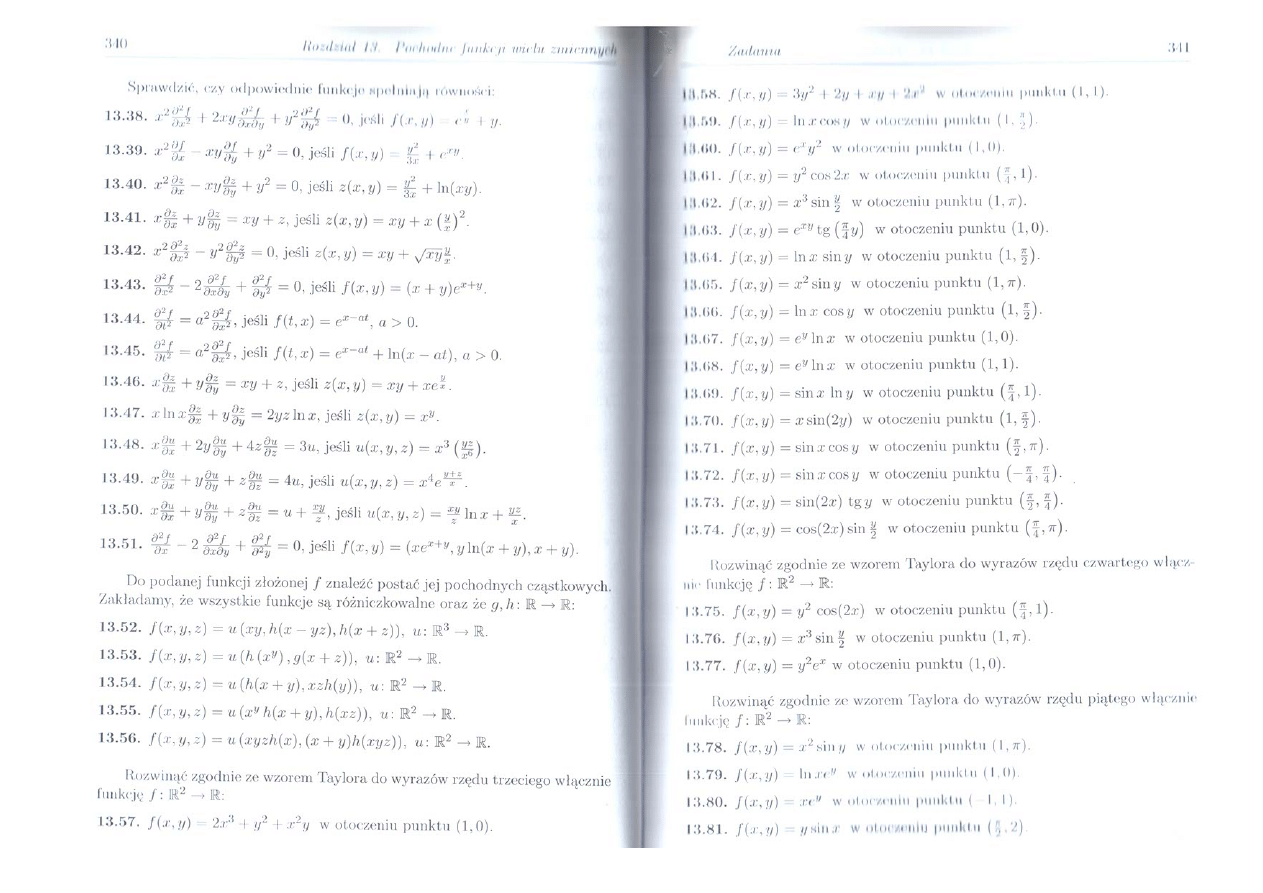 340 Rozdział 13. Pochodne funkcji wielu zmiennych
Sprawdzić, czy odpowiednie funkcje spełniają równości:
13.38. x² ∂²f/∂x² + 2xy ∂²f/∂x∂y + y² ∂²f/∂y² = 0, jeśli f(x, y) = e^(x/y) + y.
13.39. x² ∂f/∂x − xy ∂f/∂y + y² = 0, jeśli f(x, y) = y²/3x + e^(xy).
13.40. x² ∂z/∂x − xy ∂z/∂y + y² = 0, jeśli z(x, y) = y²/3x + ln(xy).
13.41. x ∂z/∂x + y ∂z/∂y = xy + z, jeśli z(x, y) = xy + x (y/x)².
13.42. x² ∂²z/∂x² − y² ∂²z/∂y² = 0, jeśli z(x, y) = xy + √(xy) y/x.
13.43. ∂²f/∂x² − 2 ∂²f/∂x∂y + ∂²f/∂y² = 0, jeśli f(x, y) = (x + y)e^(x+y).
13.44. ∂²f/∂t² = a² ∂²f/∂x², jeśli f(t, x) = e^(x−at), a > 0.
13.45. ∂²f/∂t² = a² ∂²f/∂x², jeśli f(t, x) = e^(x−at) + ln(x − at), a > 0.
13.46. x ∂z/∂x + y ∂z/∂y = xy + z, jeśli z(x, y) = xy + xe^(y/x).
13.47. x ln x ∂z/∂x + y ∂z/∂y = 2yz ln x, jeśli z(x, y) = x^y.
13.48. x ∂u/∂x + 2y ∂u/∂y + 4z ∂u/∂z = 3u, jeśli u(x, y, z) = x³ (yz/x⁶).
13.49. x ∂u/∂x + y ∂u/∂y + z ∂u/∂z = 4u, jeśli u(x, y, z) = x⁴e^((y+z)/x).
13.50. x ∂u/∂x + y ∂u/∂y + z ∂u/∂z = u + xy/z, jeśli u(x, y, z) = xy/z ln x + yz/x.
13.51. ∂²f/∂x − 2 ∂²f/∂x∂y + ∂²f/∂²y = 0, jeśli f(x, y) = (xe^(x+y), y ln(x + y), x + y).
Do podanej funkcji złożonej f znaleźć postać jej pochodnych cząstkowych.
Zakładamy, że wszystkie funkcje są różniczkowalne oraz że g, h: ℝ → ℝ:
13.52. f(x, y, z) = u (xy, h(x − yz), h(x + z)), u: ℝ³ → ℝ.
13.53. f(x, y, z) = u (h (x^y) , g(x + z)), u: ℝ² → ℝ.
13.54. f(x, y, z) = u (h(x + y), xzh(y)), u: ℝ² → ℝ.
13.55. f(x, y, z) = u (x^y h(x + y), h(xz)), u: ℝ² → ℝ.
13.56. f(x, y, z) = u (xyzh(x), (x + y)h(xyz)), u: ℝ² → ℝ.
Rozwinąć zgodnie ze wzorem Taylora do wyrazów rzędu trzeciego włącznie
funkcję f: ℝ² → ℝ:
13.57. f(x, y) = 2x³ + y² + x²y w otoczeniu punktu (1, 0).
Zadania 341
13.58. f(x, y) = 3y² + 2y + xy + 2x² w otoczeniu punktu (1, 1).
13.59. f(x, y) = ln x cos y w otoczeniu punktu (1, π/2).
13.60. f(x, y) = e^x y² w otoczeniu punktu (1, 0).
13.61. f(x, y) = y² cos 2x w otoczeniu punktu (π/4, 1).
13.62. f(x, y) = x³ sin y/2 w otoczeniu punktu (1, π).
13.63. f(x, y) = e^(xy) tg (π/4 y) w otoczeniu punktu (1, 0).
13.64. f(x, y) = ln x sin y w otoczeniu punktu (1, π/2).
13.65. f(x, y) = x² sin y w otoczeniu punktu (1, π).
13.66. f(x, y) = ln x cos y w otoczeniu punktu (1, π/2).
13.67. f(x, y) = e^y ln x w otoczeniu punktu (1, 0).
13.68. f(x, y) = e^y ln x w otoczeniu punktu (1, 1).
13.69. f(x, y) = sin x ln y w otoczeniu punktu (π/4, 1).
13.70. f(x, y) = x sin(2y) w otoczeniu punktu (1, π/2).
13.71. f(x, y) = sin x cos y w otoczeniu punktu (π/2, π).
13.72. f(x, y) = sin x cos y w otoczeniu punktu (−π/4, π/4).
13.73. f(x, y) = sin(2x) tg y w otoczeniu punktu (π/2, π/4).
13.74. f(x, y) = cos(2x) sin y/2 w otoczeniu punktu (π/4, π).
Rozwinąć zgodnie ze wzorem Taylora do wyrazów rzędu czwartego włącz-
nie funkcję f: ℝ² → ℝ:
13.75. f(x, y) = y² cos(2x) w otoczeniu punktu (π/4, 1).
13.76. f(x, y) = x³ sin y/2 w otoczeniu punktu (1, π).
13.77. f(x, y) = y²e^x w otoczeniu punktu (1, 0).
Rozwinąć zgodnie ze wzorem Taylora do wyrazów rzędu piątego włącznie
funkcję f: ℝ² → ℝ:
13.78. f(x, y) = x² sin y w otoczeniu punktu (1, π).
13.79. f(x, y) = ln xe^y w otoczeniu punktu (1, 0).
13.80. f(x, y) = xe^y w otoczeniu punktu (−1, 1).
13.81. f(x, y) = y sin x w otoczeniu punktu (π/2, 2).